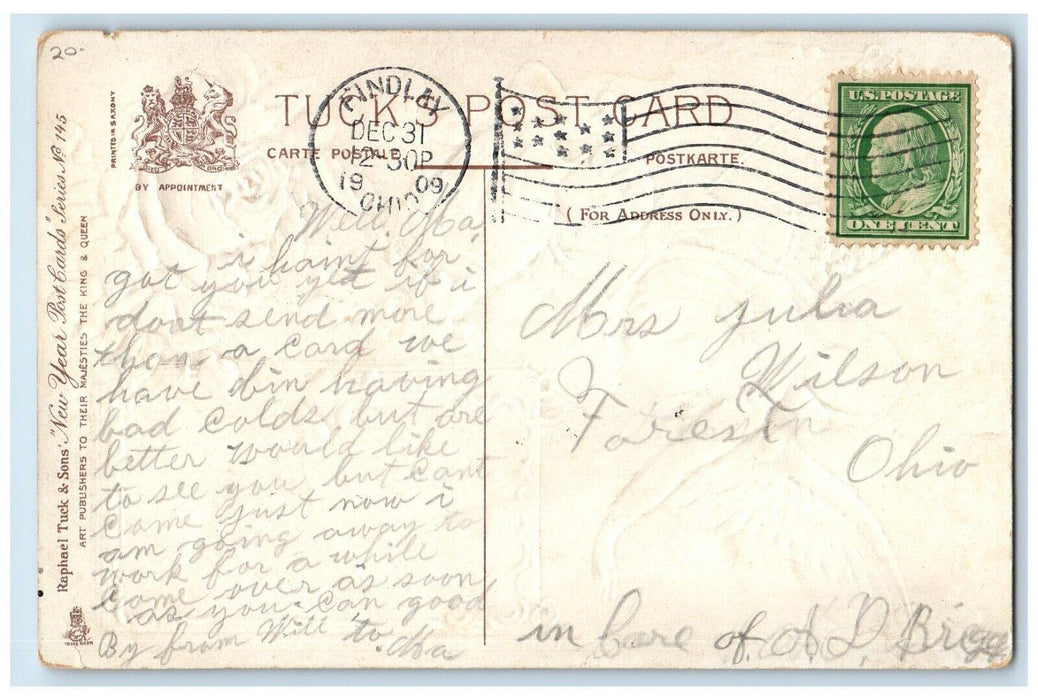 20-
PRINTED IN SAXONY
BY APPOINTMENT
Raphael Tuck & Sons' "New Year Post Cards" Series No 145
ART PUBLISHERS TO THEIR MAJESTIES THE KING & QUEEN
TRADE MARK
TUCK'S POST CARD
CARTE POSTALE
POSTKARTE.
( FOR ADDRESS ONLY. )
FINDLAY
DEC 31
12-30P
1909
OHIO
U.S. POSTAGE
ONE CENT
Well, Ma,
i haint for
got you yet if i
dont send more
than a card we
have bin having
bad colds but are
better would like
to see you but cant
come just now i
am going away to
work for a while
come over as soon
as you can good
By from Will to
Ma
Mrs Julia
Wilson
Forest
Ohio
in Care of A D Brigg